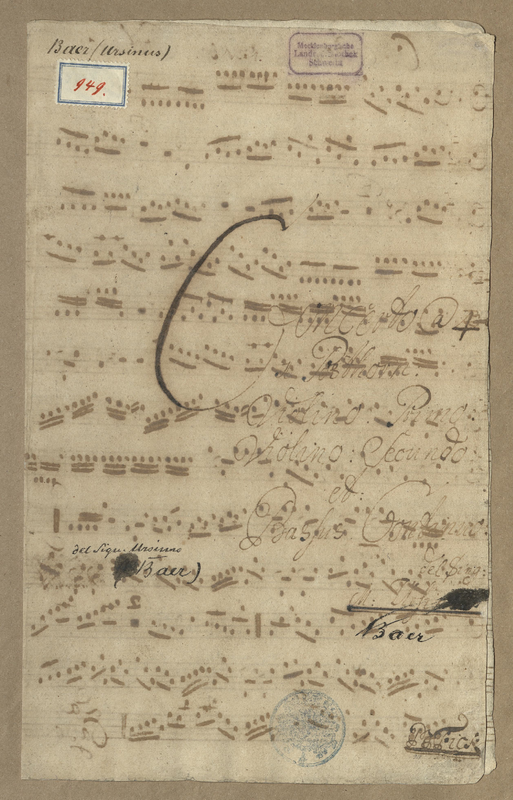 Baer (Ursinus)
949.
Mecklenburgische
Landesbibliothek
Schwerin
Concerto à 4
Hautbois.
Violino: Primo:
Violino: Secundo:
et.
Bassus Continuus:
del Sign:
del Sign. Ursinus
(Baer)
Baer